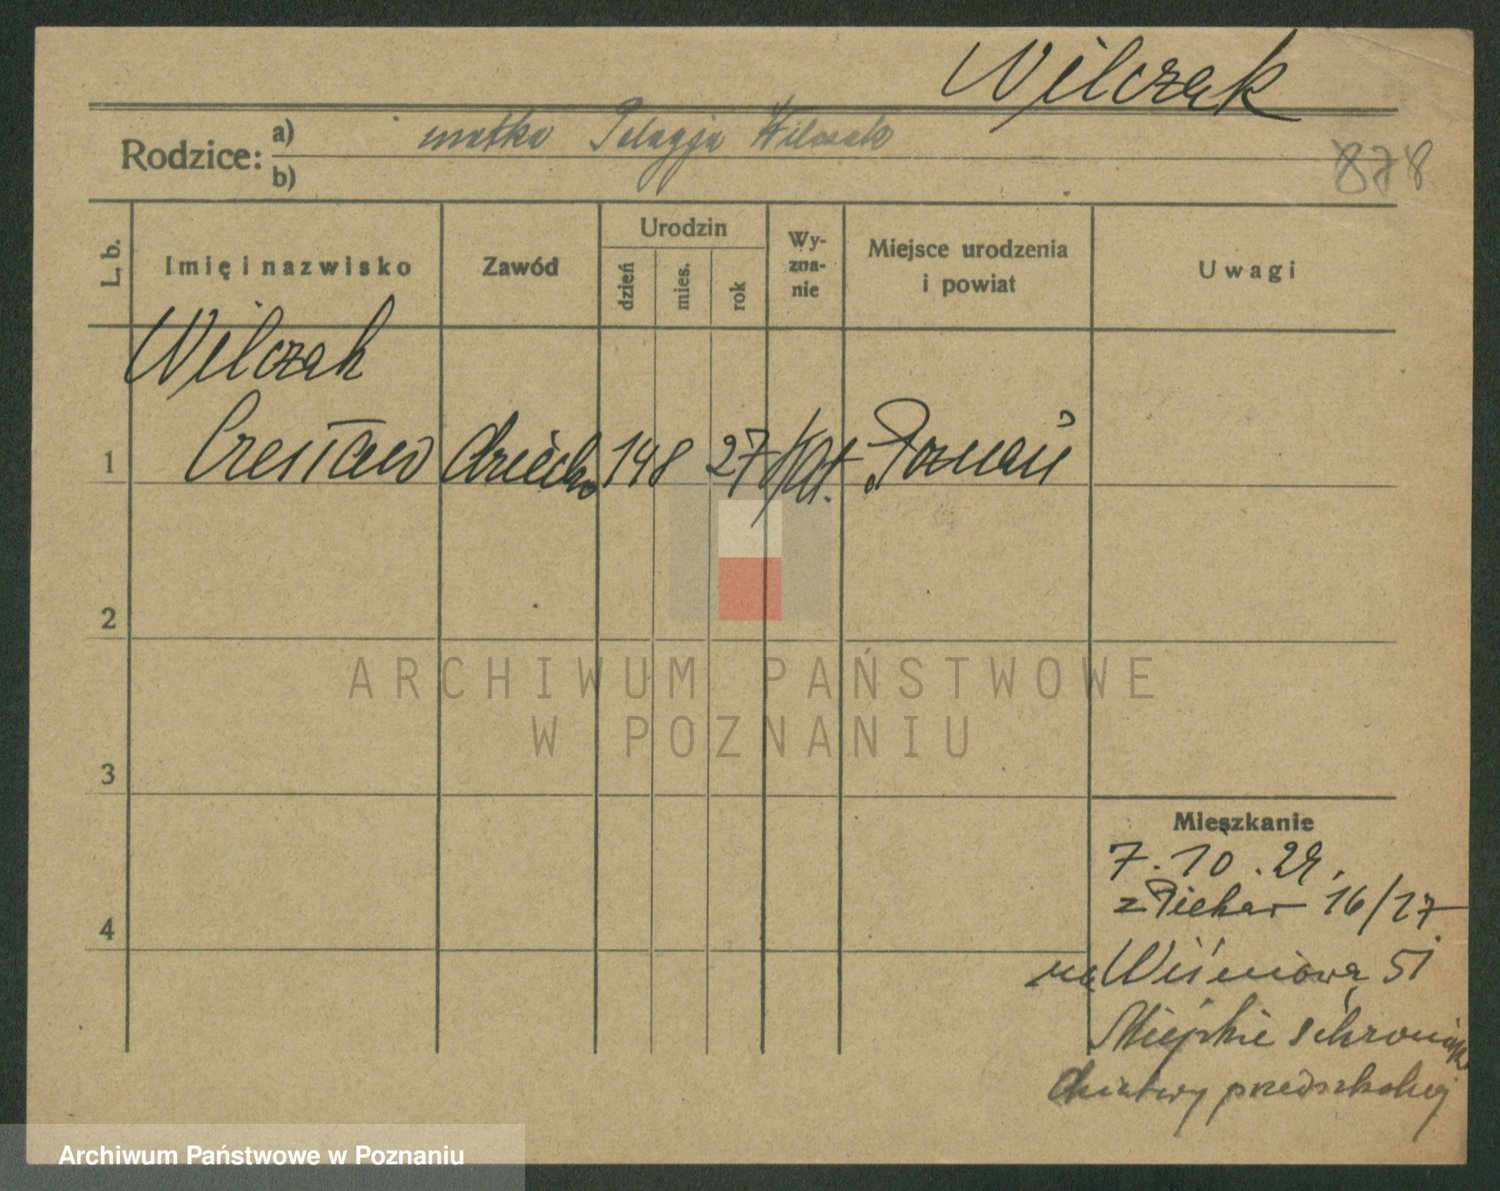 Wilczak
Rodzice: a) matka Pelagja Wilczak
b)
878
L. b.
Imię i nazwisko
Zawód
Urodzin
dzień
mies.
rok
Wy-
zna-
nie
Miejsce urodzenia
i powiat
Uwagi
Wilczak
1 Czesław dziecko 14 8 27 kat. Poznań
2
3
4
ARCHIWUM PAŃSTWOWE
W POZNANIU
Mieszkanie
7.10.29.
z Piekar 16/17
na Wiśniową 51
Miejskie schronisko
dziatwy przedszkolnej
Archiwum Państwowe w Poznaniu